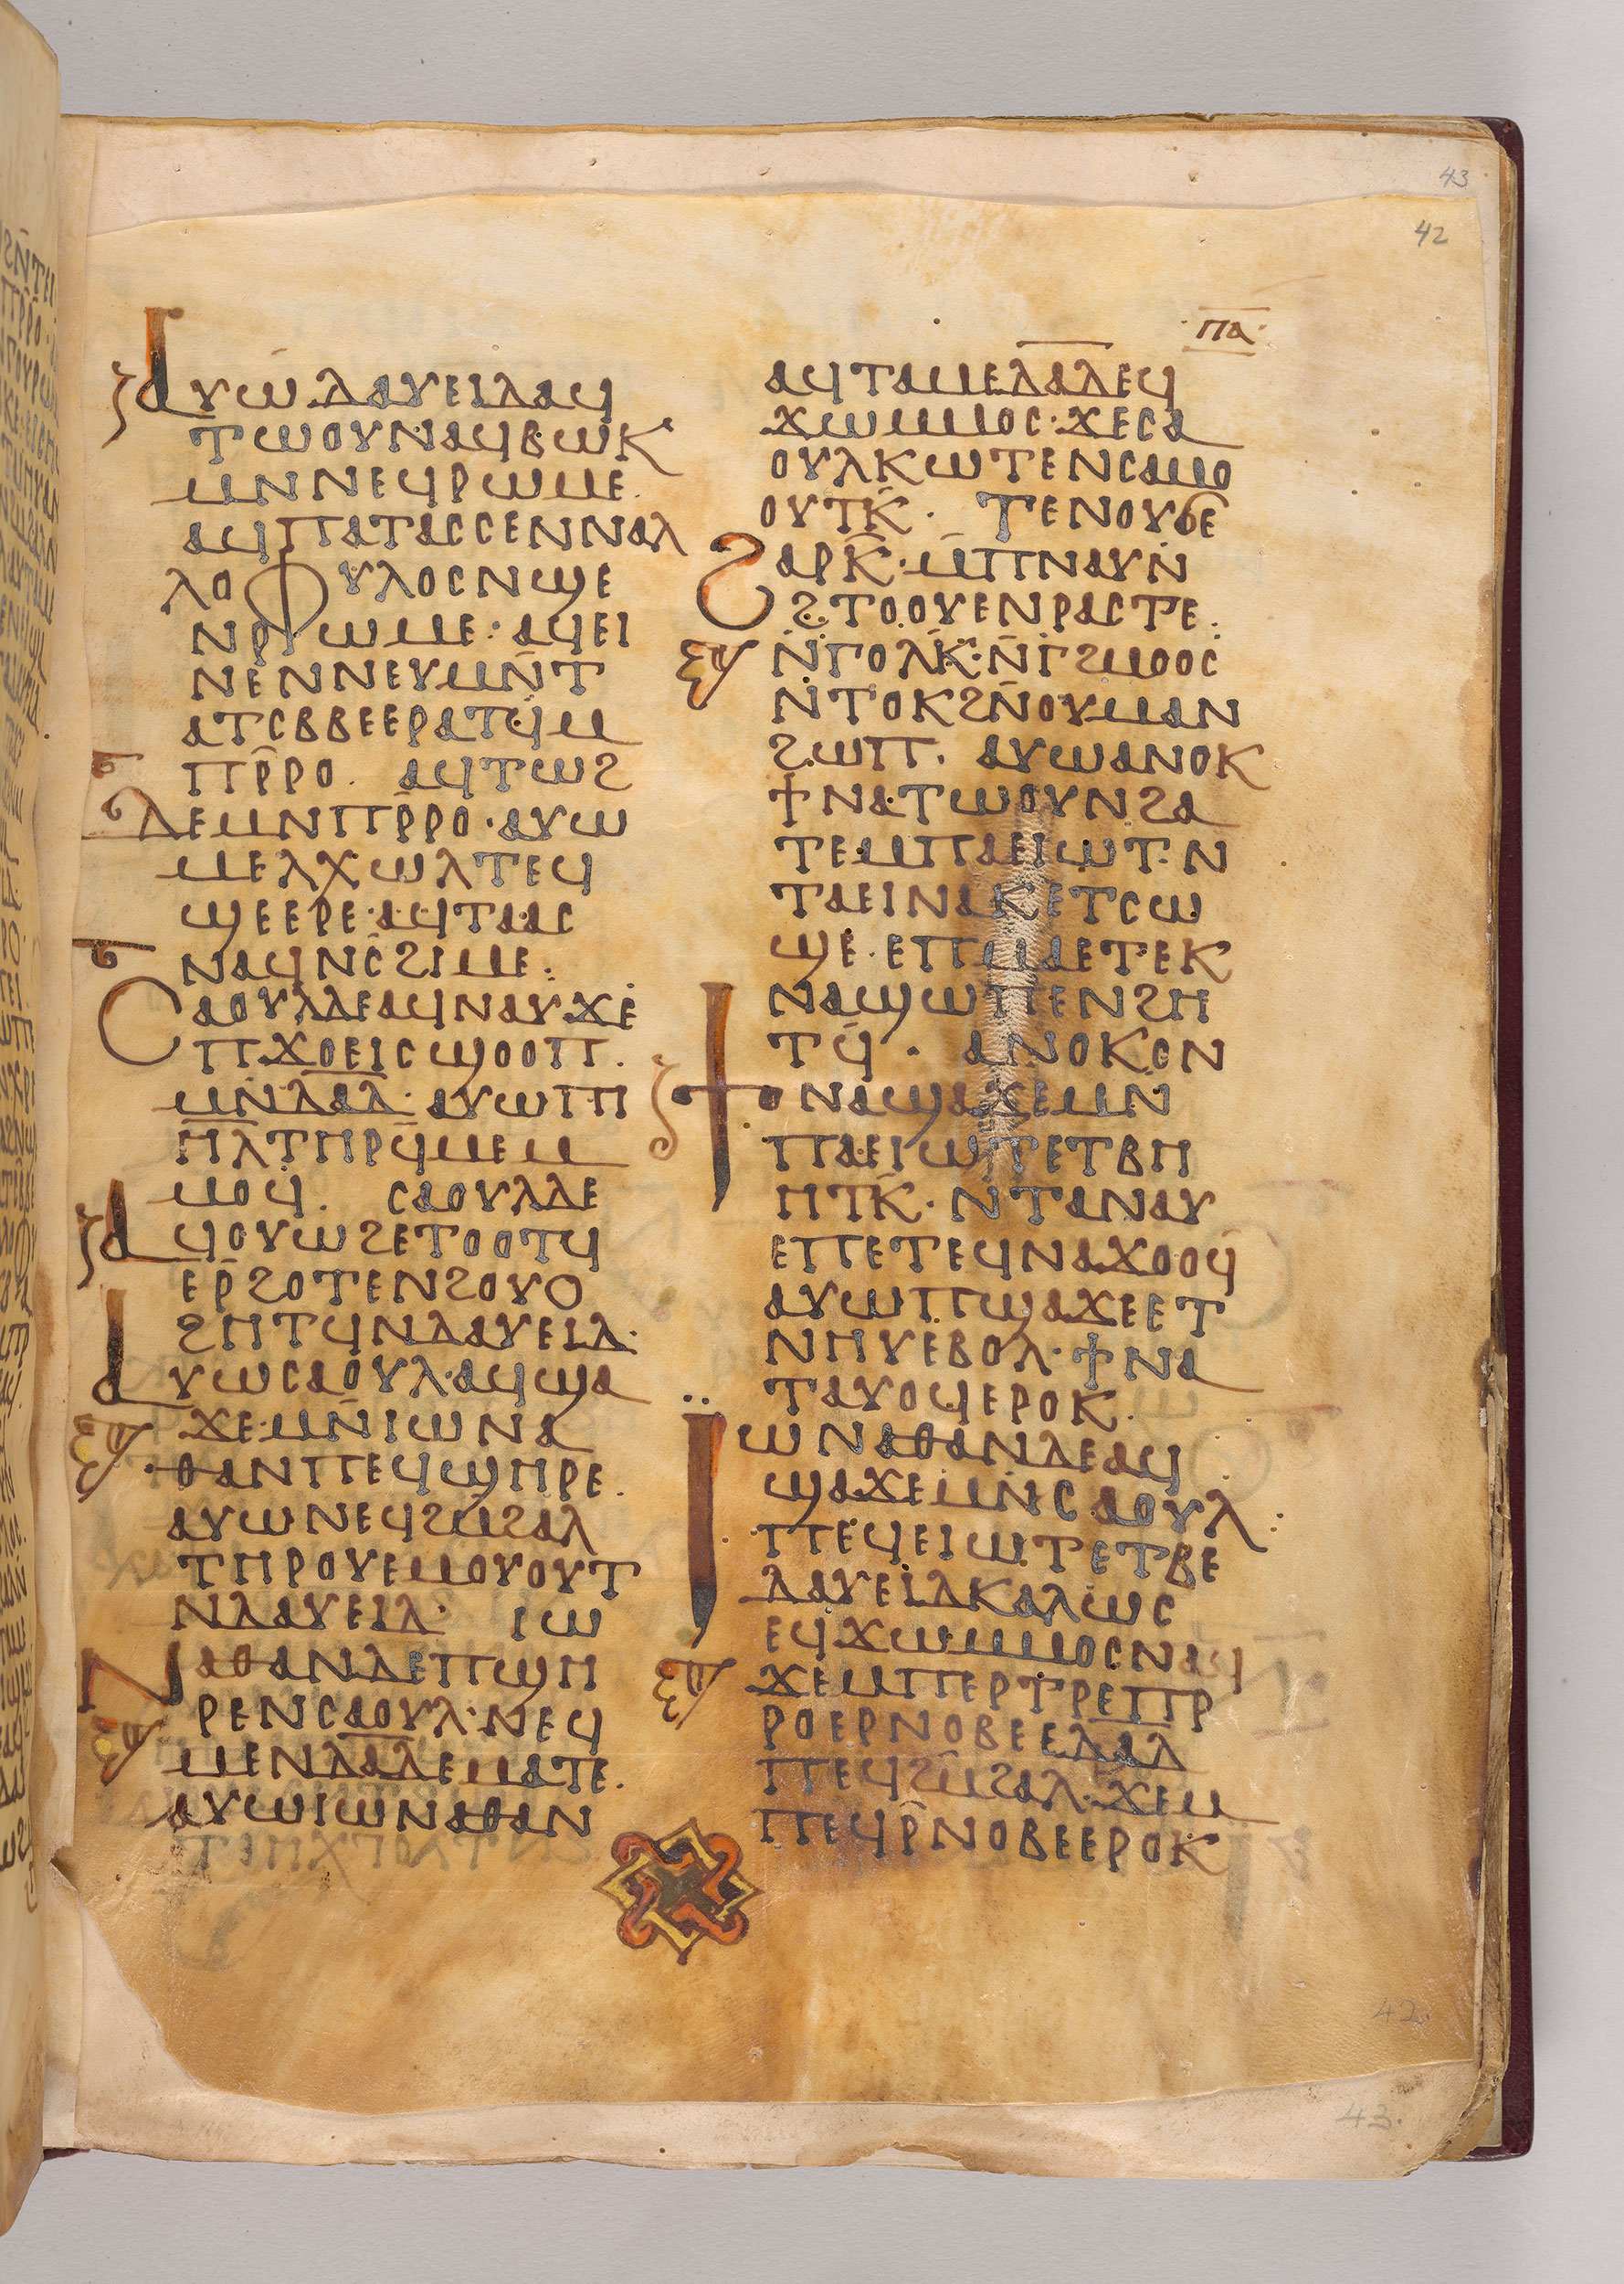 43
42
ⲡⲁ
ⲁⲩⲱ ⲇⲁⲩⲉⲓⲇⲁϥ
ⲧⲱⲟⲩⲛ·ⲁϥⲃⲱⲕ
ⲙⲛⲛⲉϥⲣⲱⲙⲉ·
ⲁϥⲡⲁⲧⲁⲥⲥⲉⲛⲛⲁⲗ
ⲗⲟⲫⲩⲗⲟⲥⲛϣⲉ
ⲛⲣⲱⲙⲉ·ⲁϥⲉⲓ
ⲛⲉⲛⲛⲉⲩⲙⲛ̄ⲧ
ⲁⲧⲥⲃⲃⲉⲉⲣⲁⲧϥ̄ⲙ
ⲡⲣ̄ⲣⲟ· ⲁϥⲧⲱϩ
ⲇⲉⲙⲛⲡⲣ̄ⲣⲟ·ⲁⲩⲱ
ⲙⲉⲗⲭⲱⲗⲧⲉϥ
ϣⲉⲉⲣⲉ·ⲁϥⲧⲁⲁⲥ
ⲛⲁϥⲛ̄ⲥϩⲓⲙⲉ:
ⲥⲁⲟⲩⲗⲇⲉⲁϥⲛⲁⲩϫⲉ
ⲡϫⲟⲉⲓⲥϣⲟⲟⲡ·
ⲙⲛ̄ⲇⲁ̄ⲇ·ⲁⲩⲱⲡⲓ
ⲏ̄ⲗⲧⲏⲣϥ̄ⲙⲉⲙ
ⲙⲟϥ· ⲥⲁⲟⲩⲗⲇⲉ
ⲁϥⲟⲩⲱϩⲉⲧⲟⲟⲧϥ
ⲉⲣ̄ϩⲟⲧⲉⲛϩⲟⲩⲟ
ϩⲏⲧϥⲛⲇⲁⲩⲉⲓⲇ·
ⲁⲩⲱⲥⲁⲟⲩⲗ·ⲁϥϣⲁ
ϫⲉ·ⲙⲛ̄ⲓⲱⲛⲁ
ⲑⲁⲛⲡⲉϥϣⲏⲣⲉ·
ⲁⲩⲱⲛⲉϥϩⲙ̄ϩⲁⲗ
ⲧⲏⲣⲟⲩⲉⲙⲟⲩⲟⲩⲧ
ⲛⲇⲁⲩⲉⲓⲇ· ⲓⲱ
ⲛⲁⲑⲁⲛⲇⲉⲡϣⲏ
ⲣⲉⲛⲥⲁⲟⲩⲗ·ⲛⲉϥ
ⲙⲉⲛⲇⲁ̄ⲇⲉⲙⲁⲧⲉ·
ⲁⲩⲱⲓⲱⲛⲁⲑⲁⲛ
ⲁϥⲧⲁⲙⲉⲇⲁ̄ⲇⲉϥ
ϫⲱⲙⲙⲟⲥ·ϫⲉⲥⲁ
ⲟⲩⲗⲕⲱⲧⲉⲛⲥⲁⲙⲟ
ⲟⲩⲧⲕ̄· ⲧⲉⲛⲟⲩϭⲉ
ϩⲁⲣⲕ̄·ⲙ̄ⲡⲛⲁⲩⲛ̄
ϩⲧⲟⲟⲩⲉⲛⲣⲁⲥⲧⲉ·
ⲛ̄ⲅⲟⲗⲕ̄·ⲛ̄ⲅϩⲙⲟⲟⲥ
ⲛ̄ⲧⲟⲕϩⲛ̄ⲟⲩⲙⲁⲛ
ϩⲱⲡ· ⲁⲩⲱⲁⲛⲟⲕ
ϯⲛⲁ·ⲧⲱⲟⲩⲛϩⲁ
ⲧⲉⲙⲡⲁⲉⲓⲱⲧ·ⲛ
ⲧⲁⲉⲓⲛⲁⲕⲉⲧⲥⲱ
ϣⲉ·ⲉⲡⲙⲁⲉⲧⲉⲕ
ⲛⲁϣⲱⲡⲉⲛϩⲏ
ⲧϥ̄· ⲁⲛⲟⲕⲟⲛ
ϯⲛⲁϣⲁϫⲉⲙⲛ
ⲡⲁⲉⲓⲱⲧⲉⲧⲃⲏ
ⲏⲧⲕ̄·ⲛ̄ⲧⲁⲛⲁⲩ
ⲉⲡⲉⲧⲉϥⲛⲁϫⲟⲟϥ
ⲁⲩⲱⲡϣⲁϫⲉⲉⲧ
ⲛⲏⲩⲉⲃⲟⲗ·ϯⲛⲁ
ⲧⲁⲩⲟϥⲉⲣⲟⲕ·
ⲓ̈ⲱⲛⲁⲑⲁⲛⲇⲉⲁϥ
ϣⲁϫⲉⲙⲛ̄ⲥⲁⲟⲩⲗ
ⲡⲉϥⲉⲓⲱⲧⲉⲧⲃⲉ
ⲇⲁⲩⲉⲓⲇⲕⲁⲗⲱⲥ
ⲉϥϫⲱⲙⲙⲟⲥⲛⲁϥ
ϫⲉⲙⲡⲉⲣⲧⲣⲉⲡⲣ
ⲣⲟⲉⲣⲛⲟⲃⲉⲉⲇⲁ̄ⲇ
ⲡⲉϥϩⲙ̄ϩⲁⲗ·ϫⲉⲙ
ⲡⲉϥⲣ̄ⲛⲟⲃⲉⲉⲣⲟⲕ
42.
43.